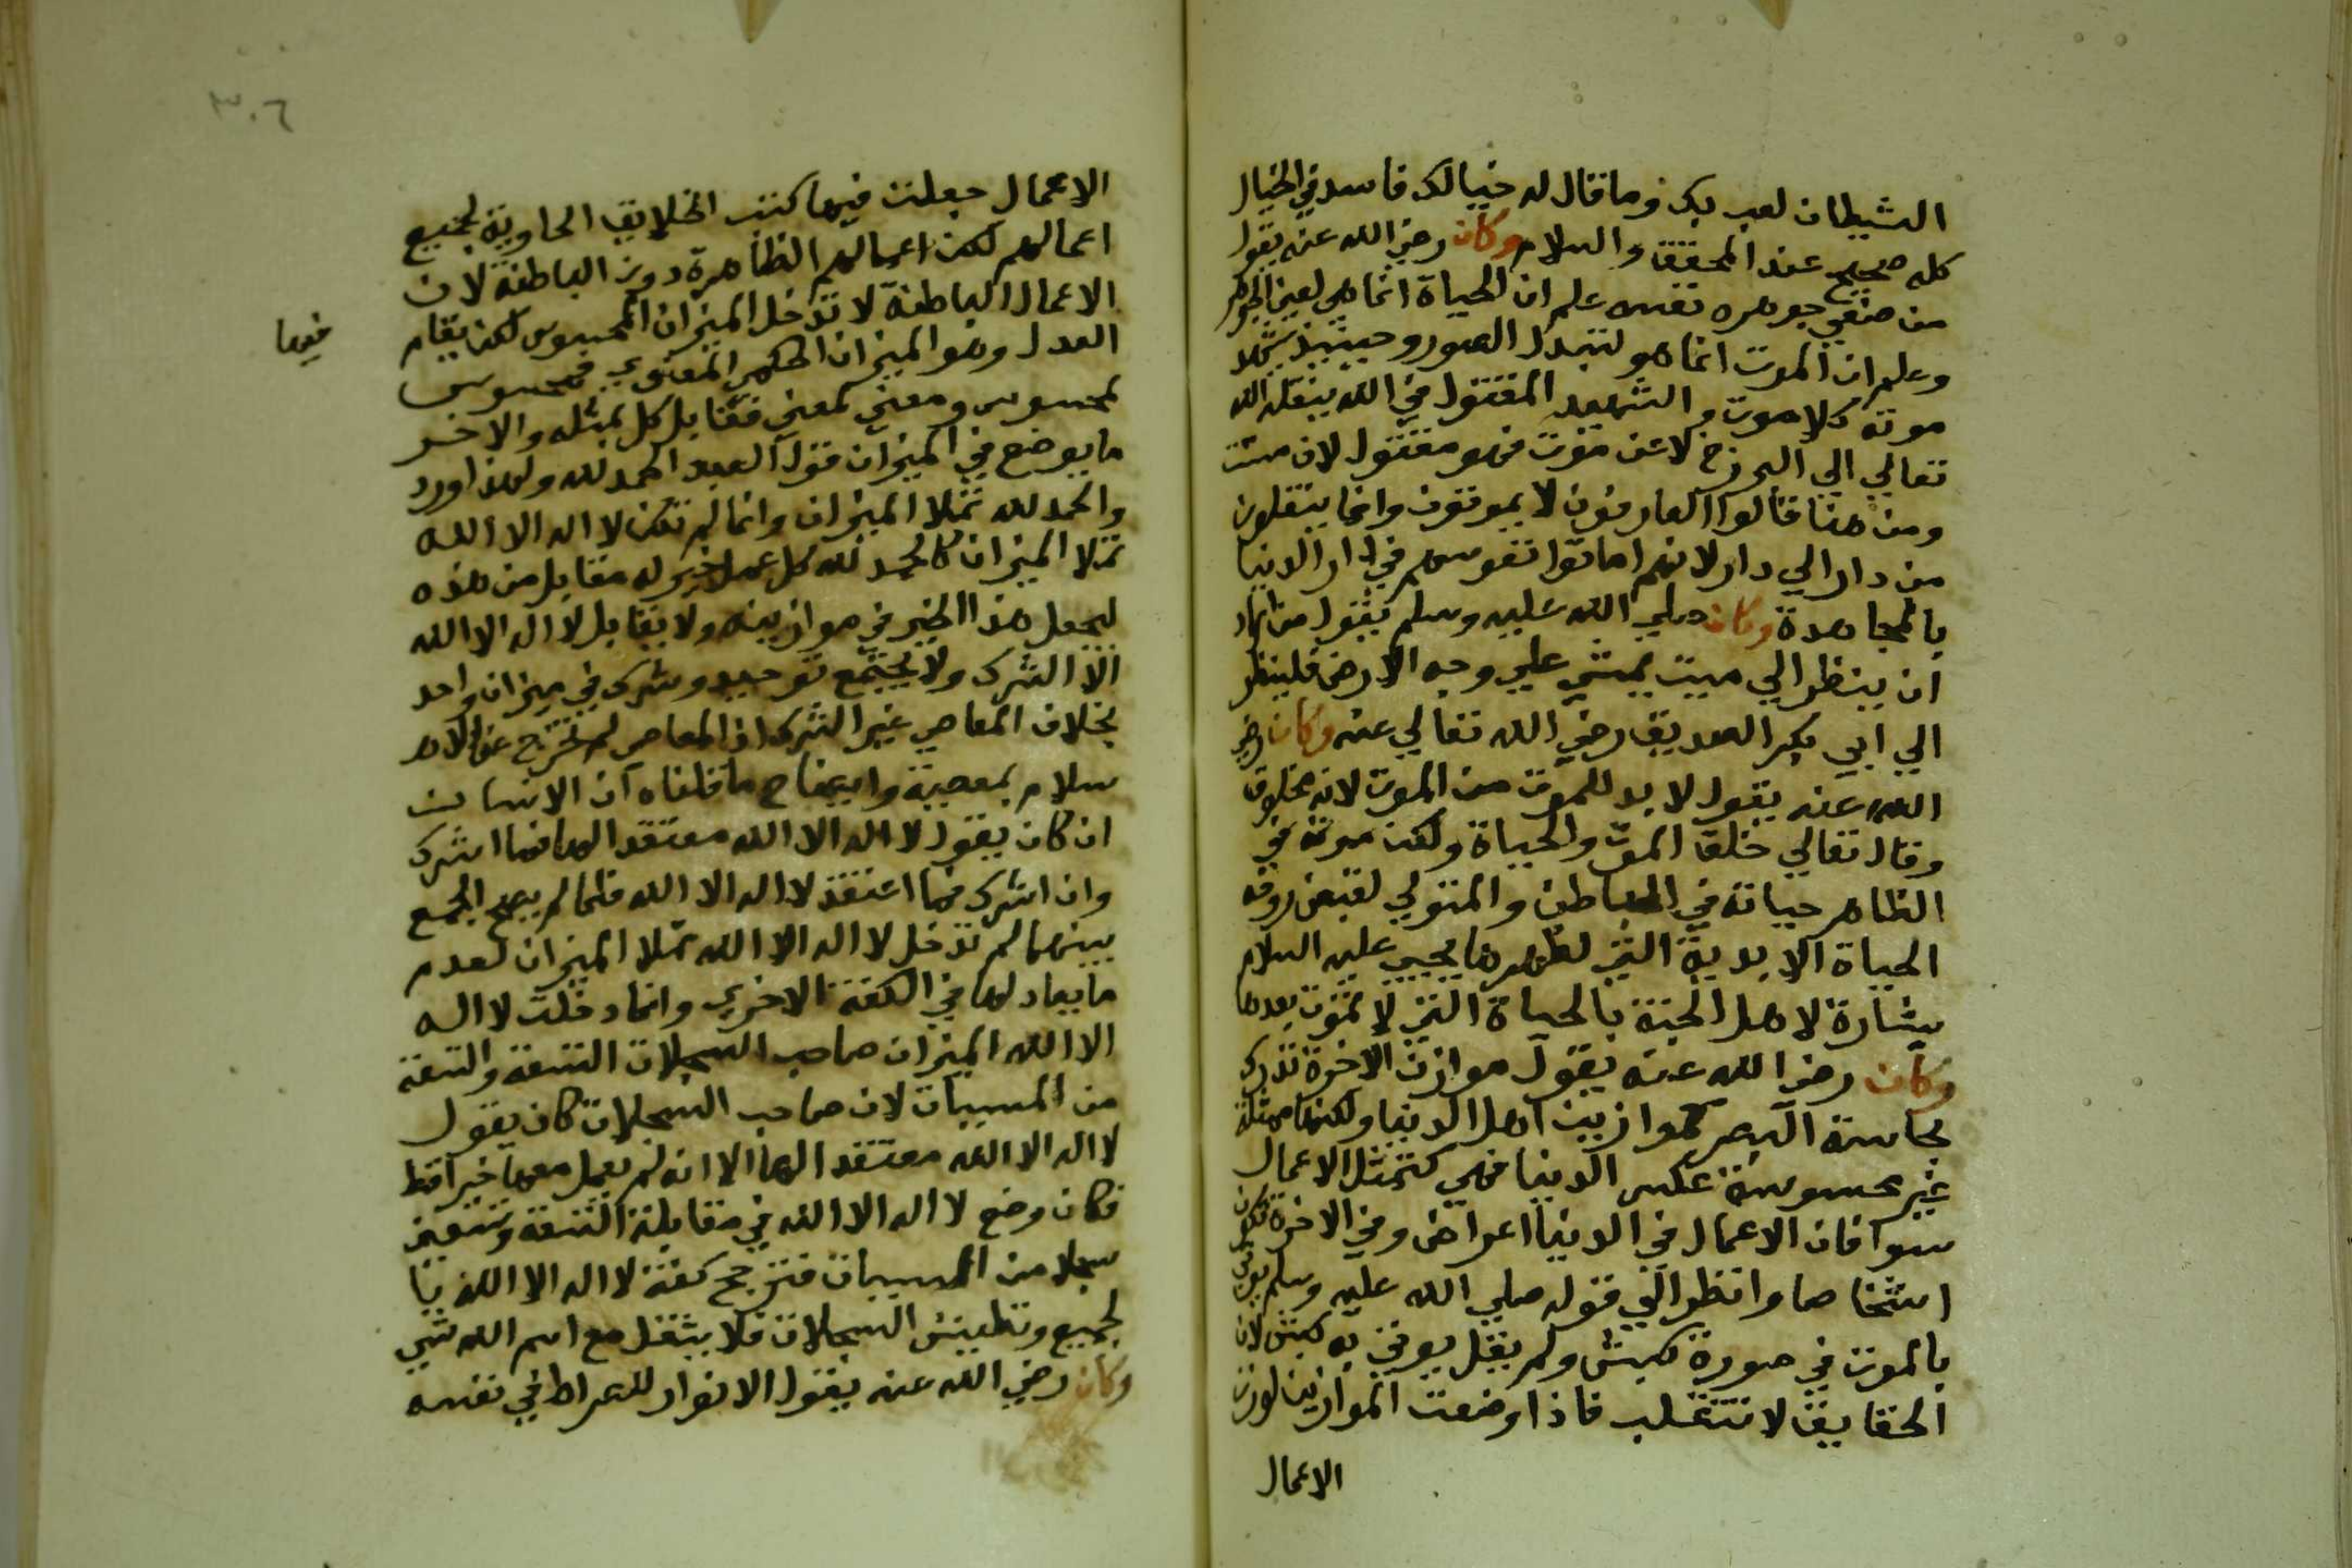 الشيطان لعب بك وما قال له خيالك فاسد في الخيال
كله صحيح عند المحقق والسلام وكان رضي الله عنه يقول
من صفي جوهره نفسه علم ان الحياة انما هي لعين الجوهر
وعلم ان الموت انما هو لتبدل الصور وحينئذ
موته كلا موت والشهيد المقتول في الله ينقله الله
تعالي الي البرزخ لا عن موت فهو مقتول لان ميت
ومن هنا قالوا العارفون لا يموتون وانما ينقلون
من دار الي دار لانهم اماتوا نفوسهم في دار الدنيا
بالمجاهدة وكان صلي الله عليه وسلم يقول من اراد
ان ينظر الي ميت يمشي علي وجه الارض فلينظر
الي ابي بكر الصديق رضي الله تعالي عنه وكان رضي
الله عنه يقول لا بد للموت من الموت لانه مخلوق
وقال تعالي خلق الموت والحياة ولكن موته في
الظاهر حياته في الباطن والمتولي لقبض روحه
الحياة الابدية التي لظهرها يحيي عليه السلام
بشارة لاهل الجنة بالحياة التي لا تموت بعدها
وكان رضي الله عنه يقول موازن الاخرة تدرك
بحاسة البصر كموازين اهل الدنيا ولكنها ممثلة
غير محسوسة عكس الدنيا فهي كتمثل الاعمال
سوا فان الاعمال في الدنيا اعراض وفي الاخرة تكون
اشخاصا وانظر الي قوله صلي الله عليه وسلم يوتي
بالموت في صورة كبش ولم يقل يوتي به كبش لان
الحقايق لا تنقلب فاذا وضعت الموازين لوزن
الاعمال
٣٠٦
الاعمال جعلت فيها كتب الخلايق الحاوية لجميع
اعمالهم لكن اعمالهم الظاهرة دون الباطنة لان
الاعمال الباطنة لا تدخل الميزان المحسوس لكن يقام
فيها
العدل وهو الميزان الحكمي المعنوي فمحسوس
لمحسوس ومعني لمعني فقابل كل بمثله والاخر
ما يوضع في الميزان قول العبد الحمد لله ولهذا ورد
والحمد لله تملا الميزان وانما لم تكن لا اله الا الله
تملا الميزان كالحمد لله كل عمل خير له مقابل من هذه
ليجعل هذا الخير في موازينه ولا يقابل لا اله الا الله
الا الشرك ولا يجتمع توحيد وشرك في ميزان واحد
بخلاف المعاصي غير الشرك اذ المعاصي لم تخرج عن الا
سلام بمعصية وايضاح ما قلناه ان الانسان
ان كان يقول لا اله الا الله معتقد الها فما اشرك
وان اشرك فما اعتقد لا اله الا الله فلما لم يصح الجمع
بينهما لم تدخل لا اله الا الله تملا الميزان لعدم
ما يعادلها في الكفة الاخري وانما دخلت لا اله
الا الله الميزان صاحب السجلات التسعة والتسعة
من السيات لان صاحب السجلات كان يقول
لا اله الا الله معتقد الها الا انه لم يعمل معها خيرا قط
فكان وضع لا اله الا الله في مقابلة التسعة وتسعين
سجلا من السيات فترجح كفة لا اله الا الله با
لجميع وتطيش السجلات فلا يثقل مع اسم الله شي
وكان رضي الله عنه يقول الانوار للصراط في نفسه